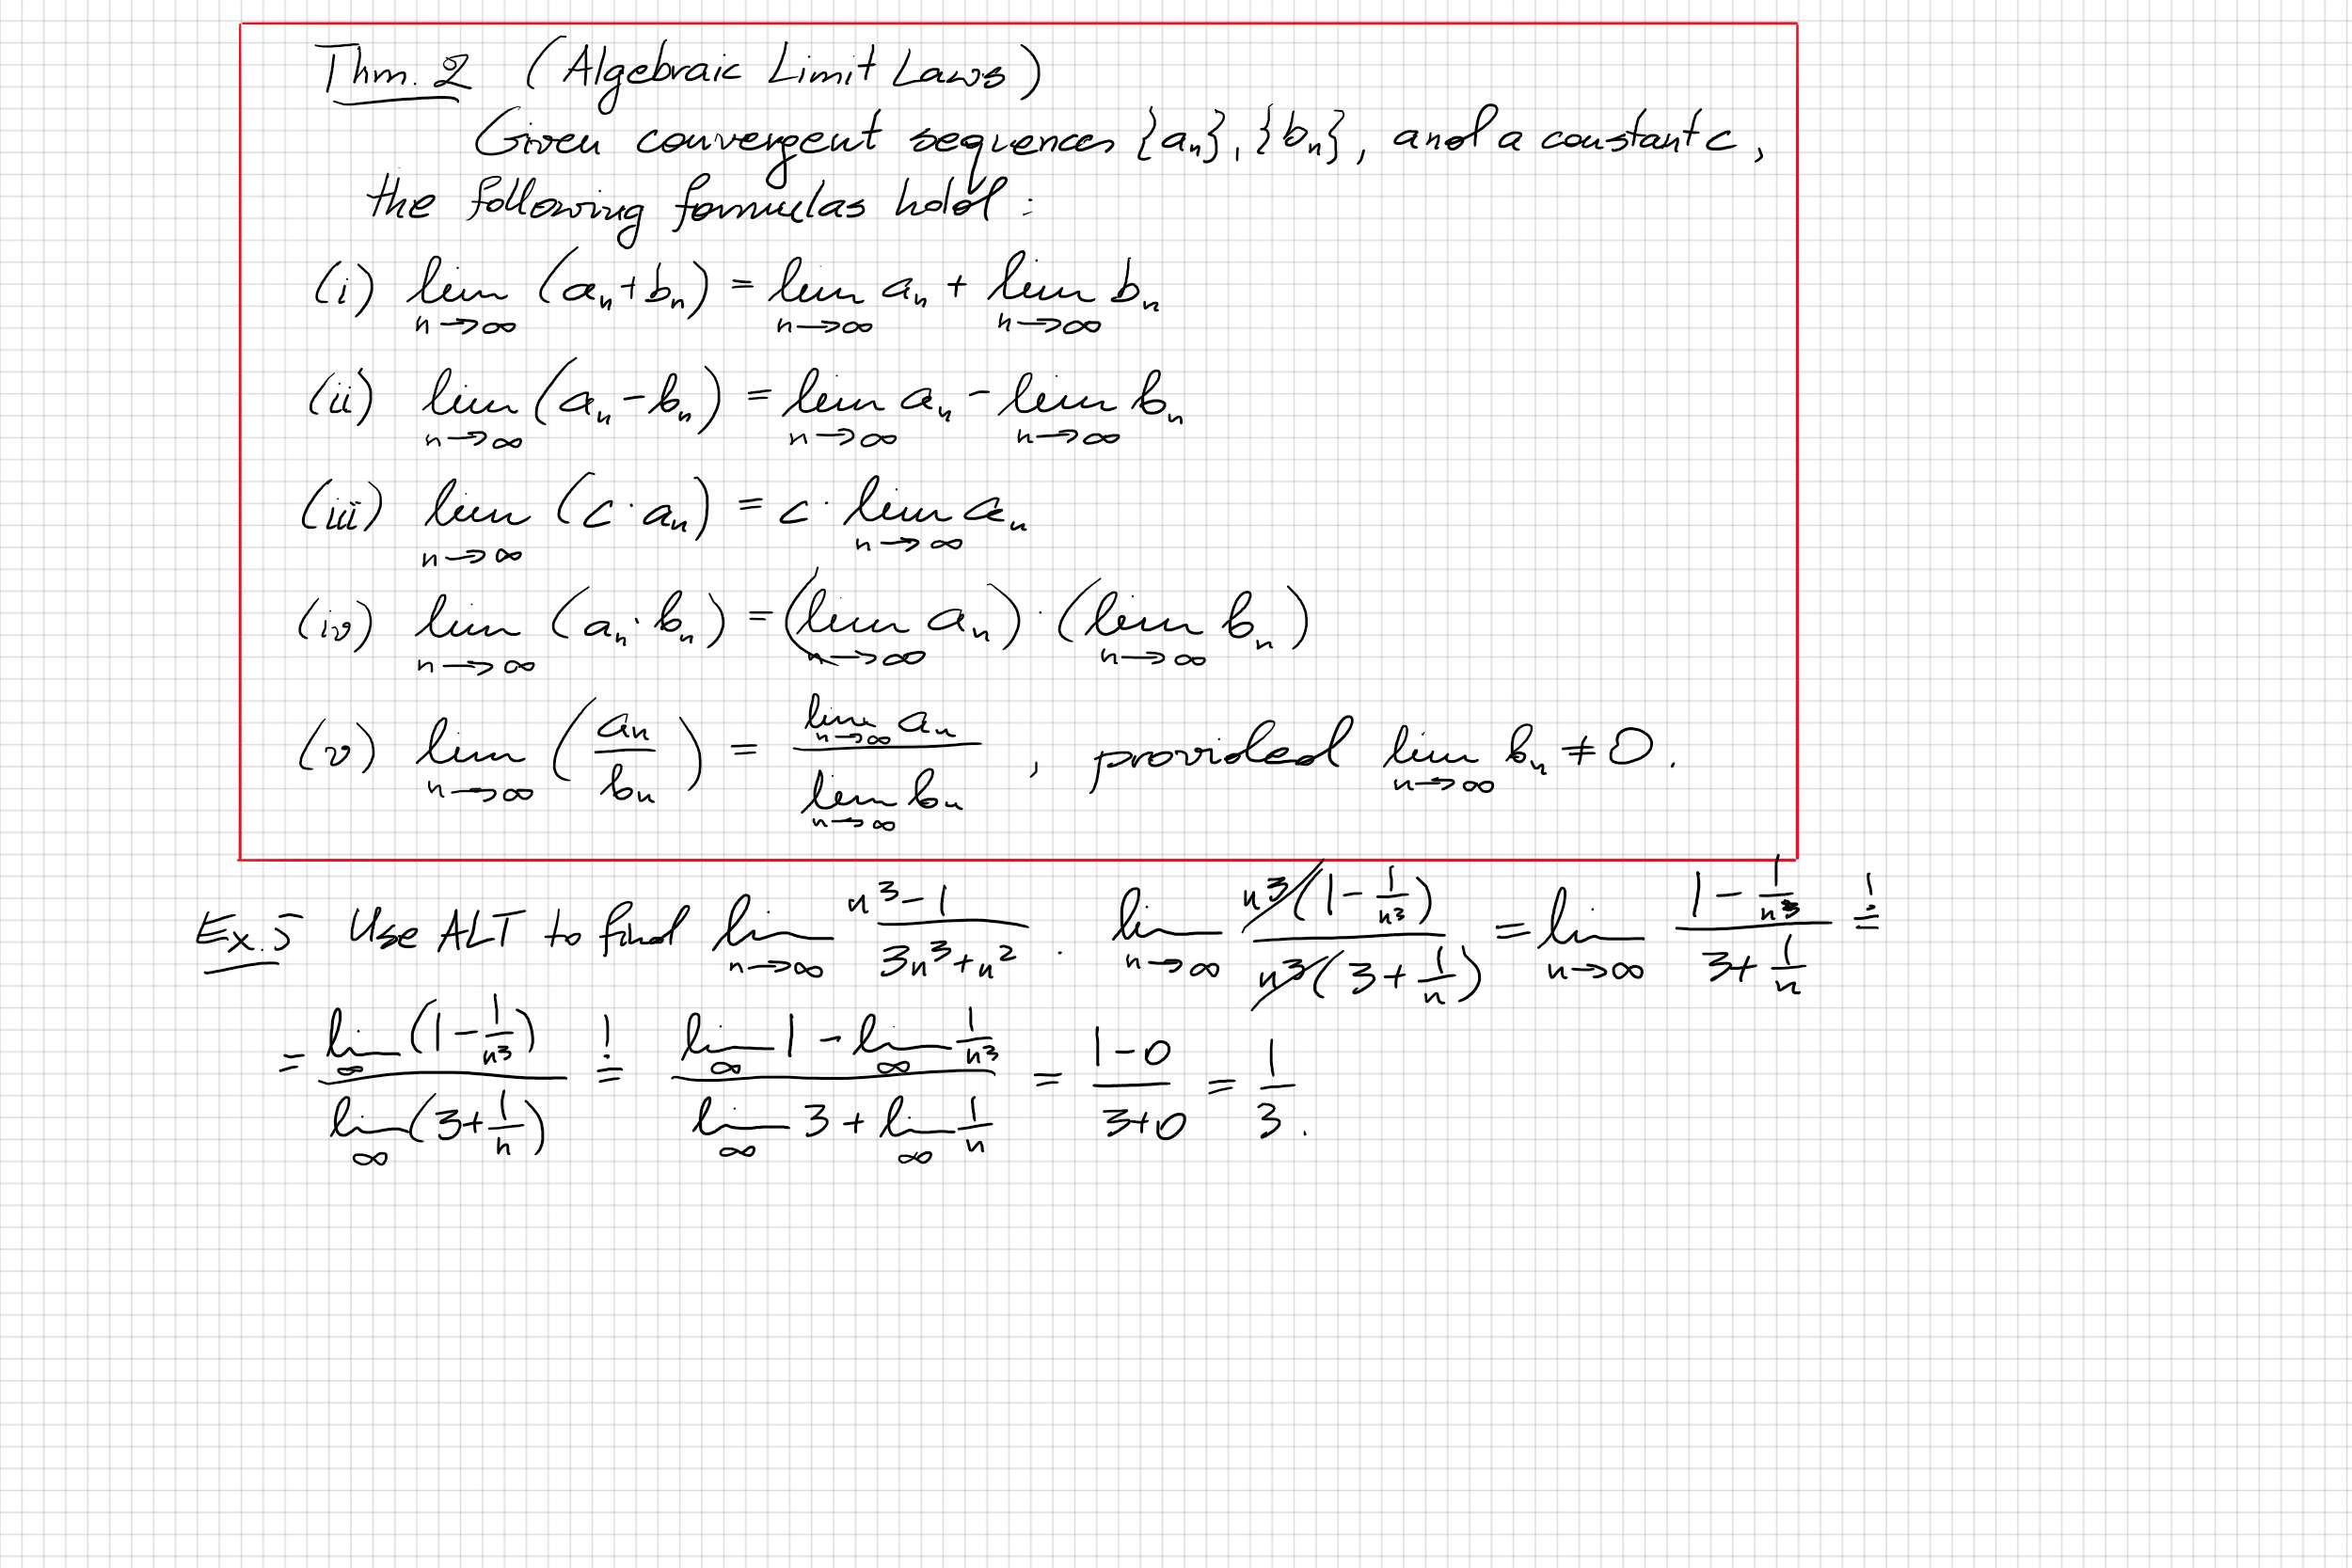 Thm. 2 (Algebraic Limit Laws)
Given convergent sequences {a_n}, {b_n}, and a constant c,
the following formulas hold :
(i) lim_{n→∞} (a_n + b_n) = lim_{n→∞} a_n + lim_{n→∞} b_n
(ii) lim_{n→∞} (a_n - b_n) = lim_{n→∞} a_n - lim_{n→∞} b_n
(iii) lim_{n→∞} (c · a_n) = c · lim_{n→∞} a_n
(iv) lim_{n→∞} (a_n · b_n) = (lim_{n→∞} a_n) · (lim_{n→∞} b_n)
(v) lim_{n→∞} (a_n / b_n) = (lim_{n→∞} a_n) / (lim_{n→∞} b_n) , provided lim_{n→∞} b_n ≠ 0.
Ex. 5 Use ALT to find lim_{n→∞} (n³ - 1)/(3n³ + n²) . lim_{n→∞} n³(1 - 1/n³) / n³(3 + 1/n) = lim_{n→∞} (1 - 1/n³)/(3 + 1/n) =!
= lim_∞ (1 - 1/n³) / lim_∞ (3 + 1/n) =! (lim_∞ 1 - lim_∞ 1/n³) / (lim_∞ 3 + lim_∞ 1/n) = (1 - 0)/(3 + 0) = 1/3 .